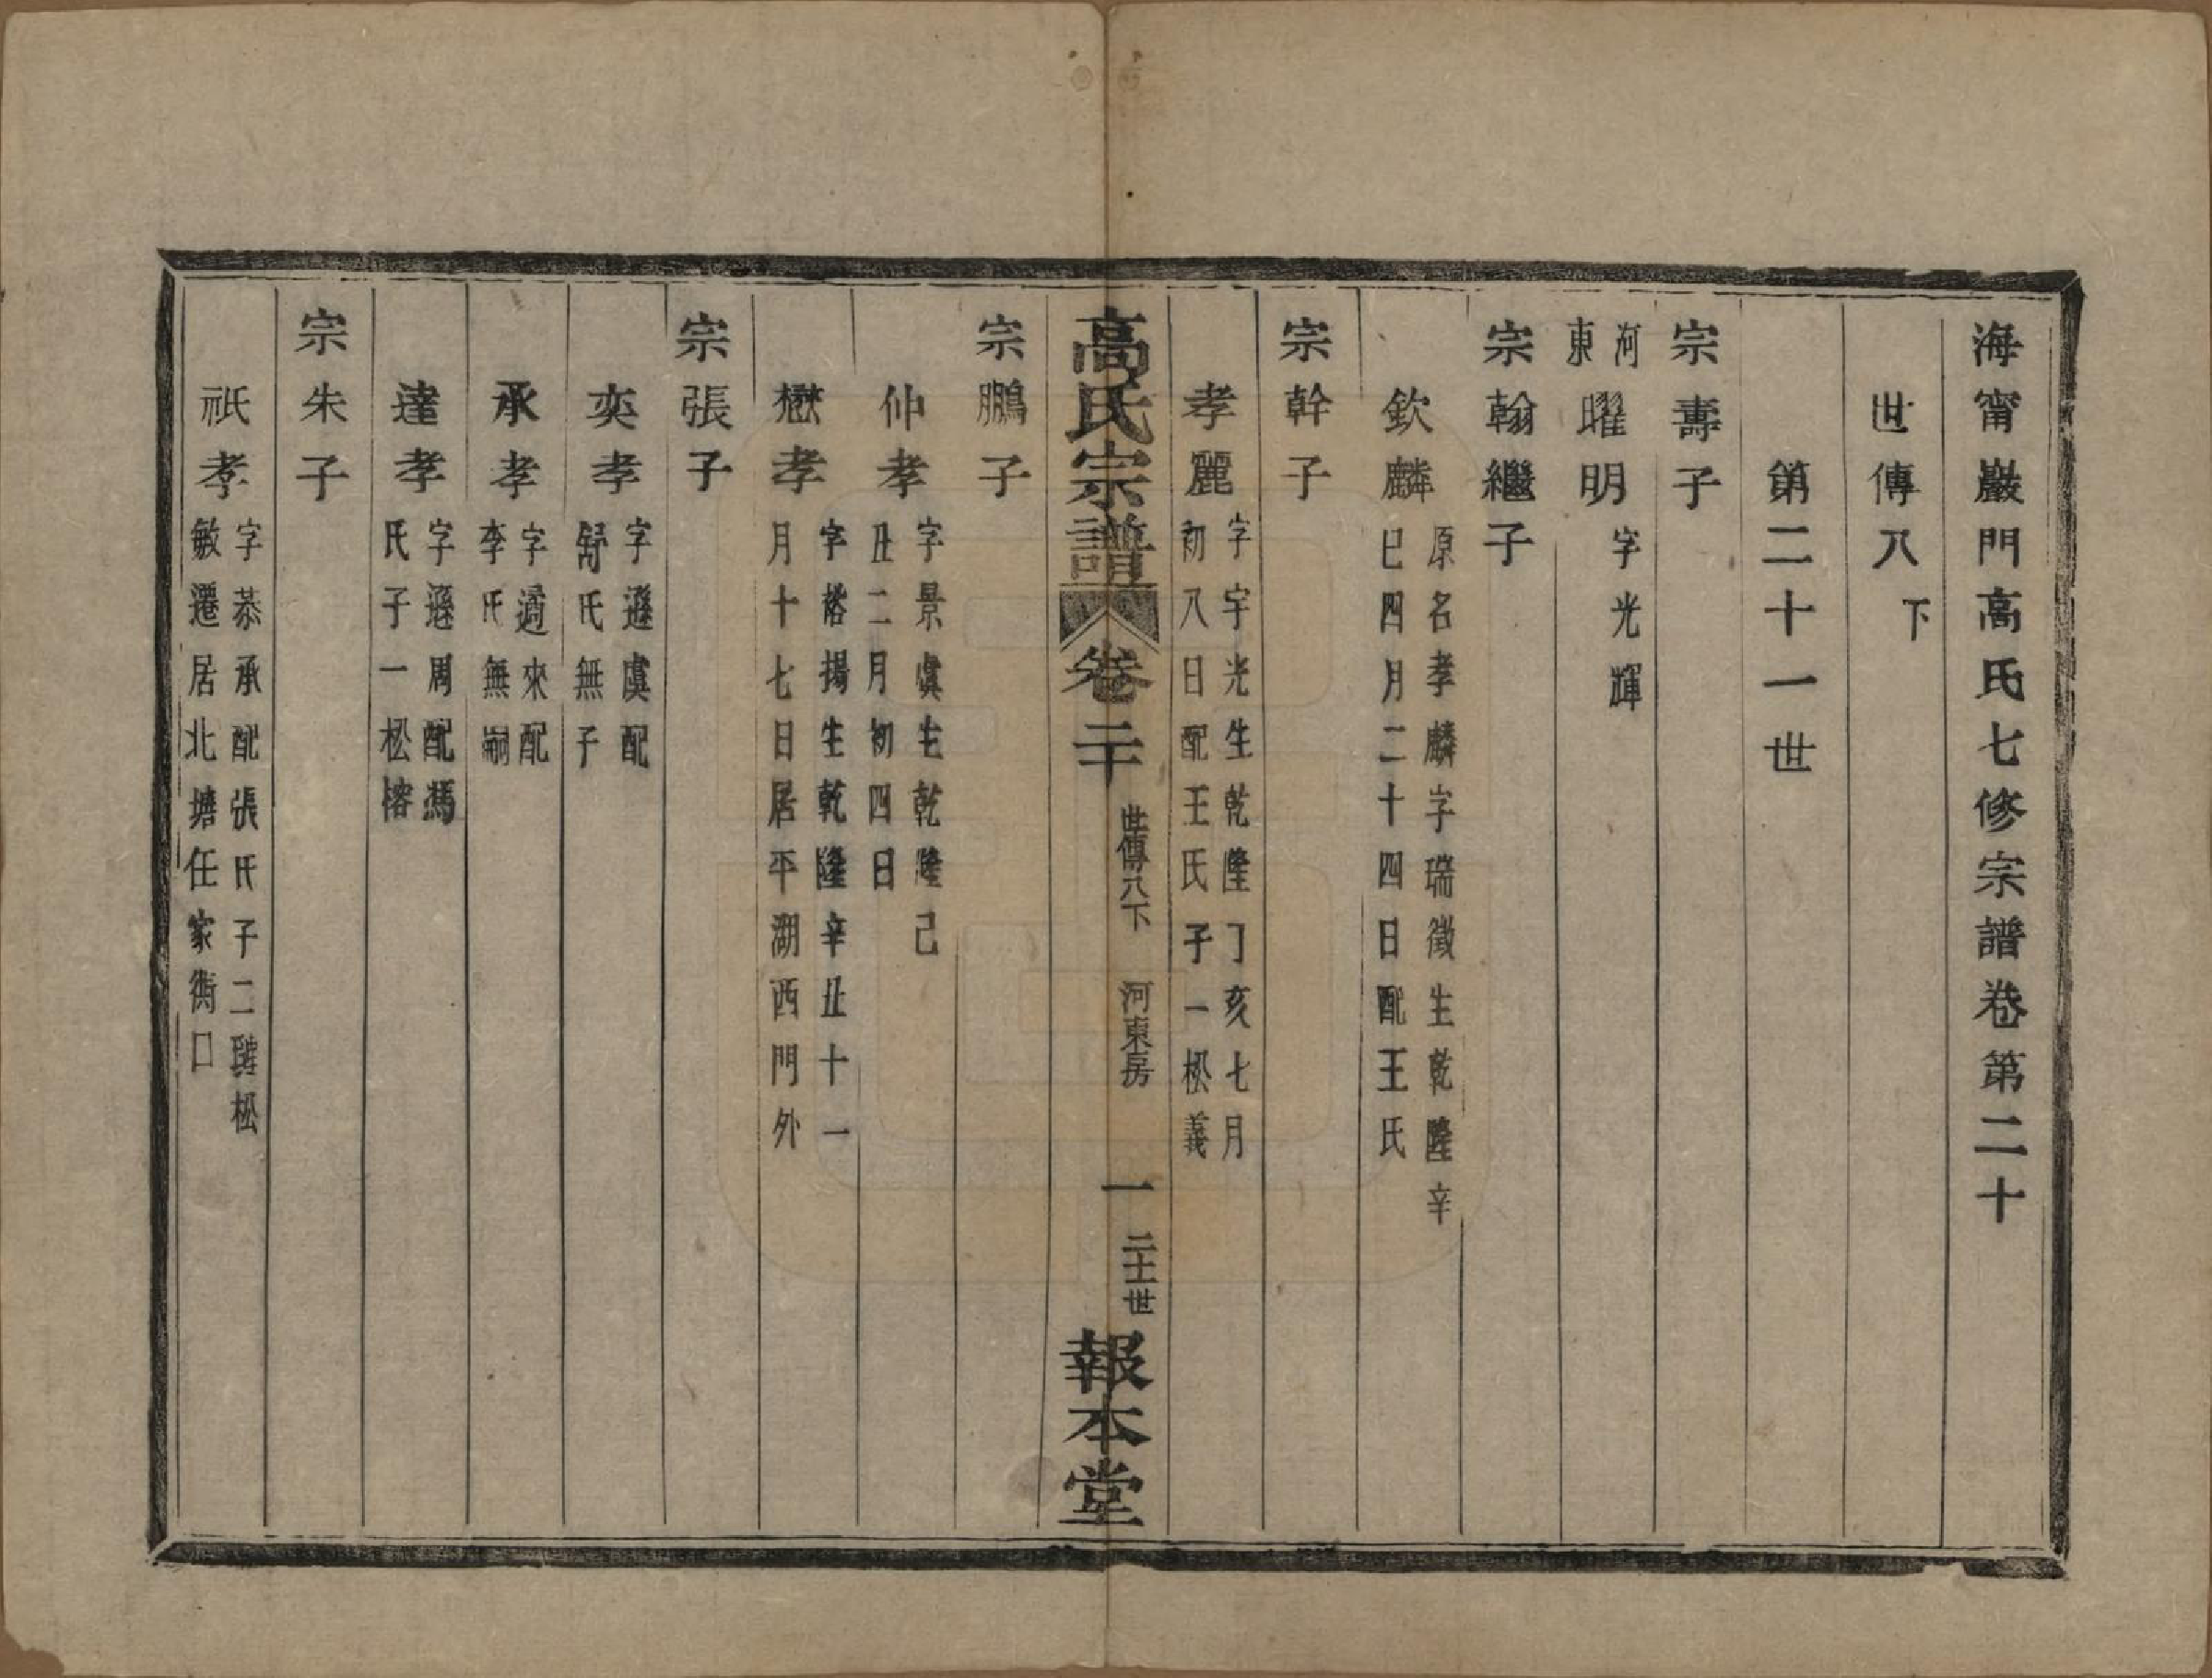 海甯巖門高氏七修宗譜卷第二十
世傳八下
第二十一世
宗壽子
河東
曜明
字光輝
宗翰繼子
欽麟
原名孝麟字瑞徵生乾隆辛
巳四月二十四日配王氏
宗幹子
孝麗
字宇光生乾隆丁亥七月
初八日配王氏子一松義
高氏宗譜
卷二十
世傳八下
河東房
一
二十一世
報本堂
宗鵬子
仲孝
字景虞生乾隆己
丑二月初四日
懋孝
字楷揚生乾隆辛丑十一
月十七日居平湖西門外
宗張子
奕孝
字遜虞配
舒氏無子
承孝
字遹來配
李氏無嗣
達孝
字遜周配馮
氏子一松榕
宗朱子
祇孝
字恭承配張氏子二 松
敏遷居北塘任家衖口